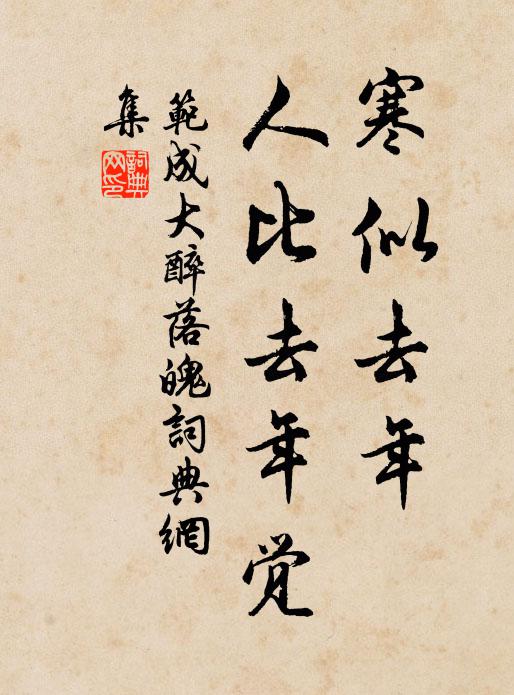 寒似去年
人比去年觉
範成大醉落魄詞典網
集
詞典网印